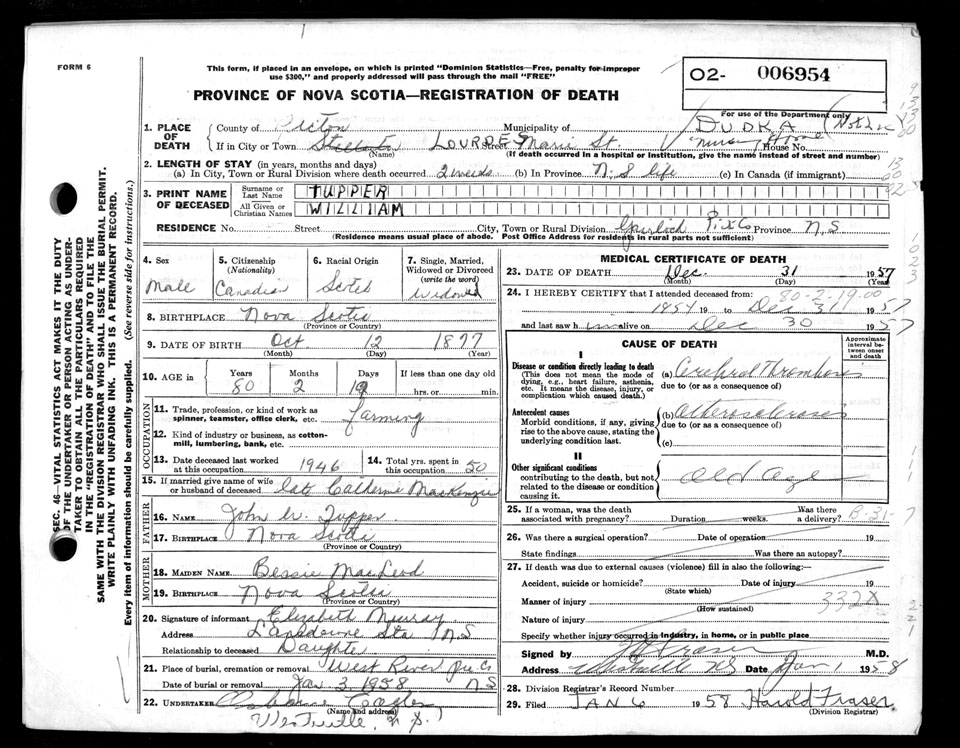 FORM 6
This form, if placed in an envelope, on which is printed "Dominion Statistics—Free, penalty for improper
use $300," and properly addressed will pass through the mail "FREE"
O2- 006954
PROVINCE OF NOVA SCOTIA—REGISTRATION OF DEATH
For use of the Department only
1. PLACE OF DEATH
County of Pictou Municipality of DUDKA
If in City or Town LOURDES Street Marie St. House No. Nursing Home
(Name) (If death occurred in a hospital or institution, give the name instead of street and number)
2. LENGTH OF STAY (in years, months and days)
(a) In City, Town or Rural Division where death occurred 2 weeks (b) In Province N.S life (c) In Canada (if immigrant)
3. PRINT NAME OF DECEASED
Surname or Last Name TUPPER
All Given or Christian Names WILLIAM
RESIDENCE No. Street City, Town or Rural Division Gairloch Pix Co Province N.S
(Residence means usual place of abode. Post Office Address for residents in rural parts not sufficient)
4. Sex
Male
5. Citizenship (Nationality)
Canadian
6. Racial Origin
Scotch
7. Single, Married, Widowed or Divorced (write the word)
Widowed
8. BIRTHPLACE Nova Scotia
(Province or Country)
9. DATE OF BIRTH Oct. 12 1877
(Month) (Day) (Year)
10. AGE in Years Months Days If less than one day old
80 2 19 hrs. or min.
OCCUPATION
11. Trade, profession, or kind of work as spinner, teamster, office clerk, etc. Farming
12. Kind of industry or business, as cotton-mill, lumbering, bank, etc.
13. Date deceased last worked at this occupation 1946
14. Total yrs. spent in this occupation 50
15. If married give name of wife or husband of deceased late Catherine MacKenzie
FATHER
16. NAME John W. Tupper
17. BIRTHPLACE Nova Scotia
(Province or Country)
MOTHER
18. MAIDEN NAME Bessie MacLeod
19. BIRTHPLACE Nova Scotia
(Province or Country)
20. Signature of informant Elizabeth Murray
Address Lansdowne Sta N.S
Relationship to deceased Daughter
21. Place of burial, cremation or removal West River Pic Co
Date of burial or removal Jan 3, 1958 N.S
22. UNDERTAKER
(Name and address)
Westville N.S.
MEDICAL CERTIFICATE OF DEATH
23. DATE OF DEATH Dec. 31 1957
(Month) (Day) (Year)
80-2-19-00
24. I HEREBY CERTIFY that I attended deceased from:
1954 19 to Dec 31 1957
and last saw him alive on Dec 30 1957
CAUSE OF DEATH
Approximate interval between onset and death
I
Disease or condition directly leading to death
(This does not mean the mode of dying, e.g., heart failure, asthenia, etc. It means the disease, injury, or complication which caused death.)
(a) Cerebral Thrombosis
due to (or as a consequence of)
Antecedent causes
Morbid conditions, if any, giving rise to the above cause, stating the underlying condition last.
(b) Atherosclerosis
due to (or as a consequence of)
(c)
II
Other significant conditions
contributing to the death, but not related to the disease or condition causing it.
Old Age
25. If a woman, was the death associated with pregnancy? Duration weeks. Was there a delivery?
B-31-7
26. Was there a surgical operation? Date of operation 19
State findings Was there an autopsy?
27. If death was due to external causes (violence) fill in also the following:—
Accident, suicide or homicide? Date of injury 19
(State which)
Manner of injury 332X
(How sustained)
Nature of injury
Specify whether injury occurred in industry, in home, or in public place
Signed by Fraser M.D.
Address Westville NS Date Jan 1 1958
28. Division Registrar's Record Number
29. Filed JAN 6 1958 Harold Fraser
(Division Registrar)
SEC. 46—VITAL STATISTICS ACT MAKES IT THE DUTY
OF THE UNDERTAKER OR PERSON ACTING AS UNDER-
TAKER TO OBTAIN ALL THE PARTICULARS REQUIRED
IN THE "REGISTRATION OF DEATH" AND TO FILE THE
SAME WITH THE DIVISION REGISTRAR WHO SHALL ISSUE THE BURIAL PERMIT.
WRITE PLAINLY WITH UNFADING INK. THIS IS A PERMANENT RECORD.
Every item of information should be carefully supplied. (See reverse side for instructions.)